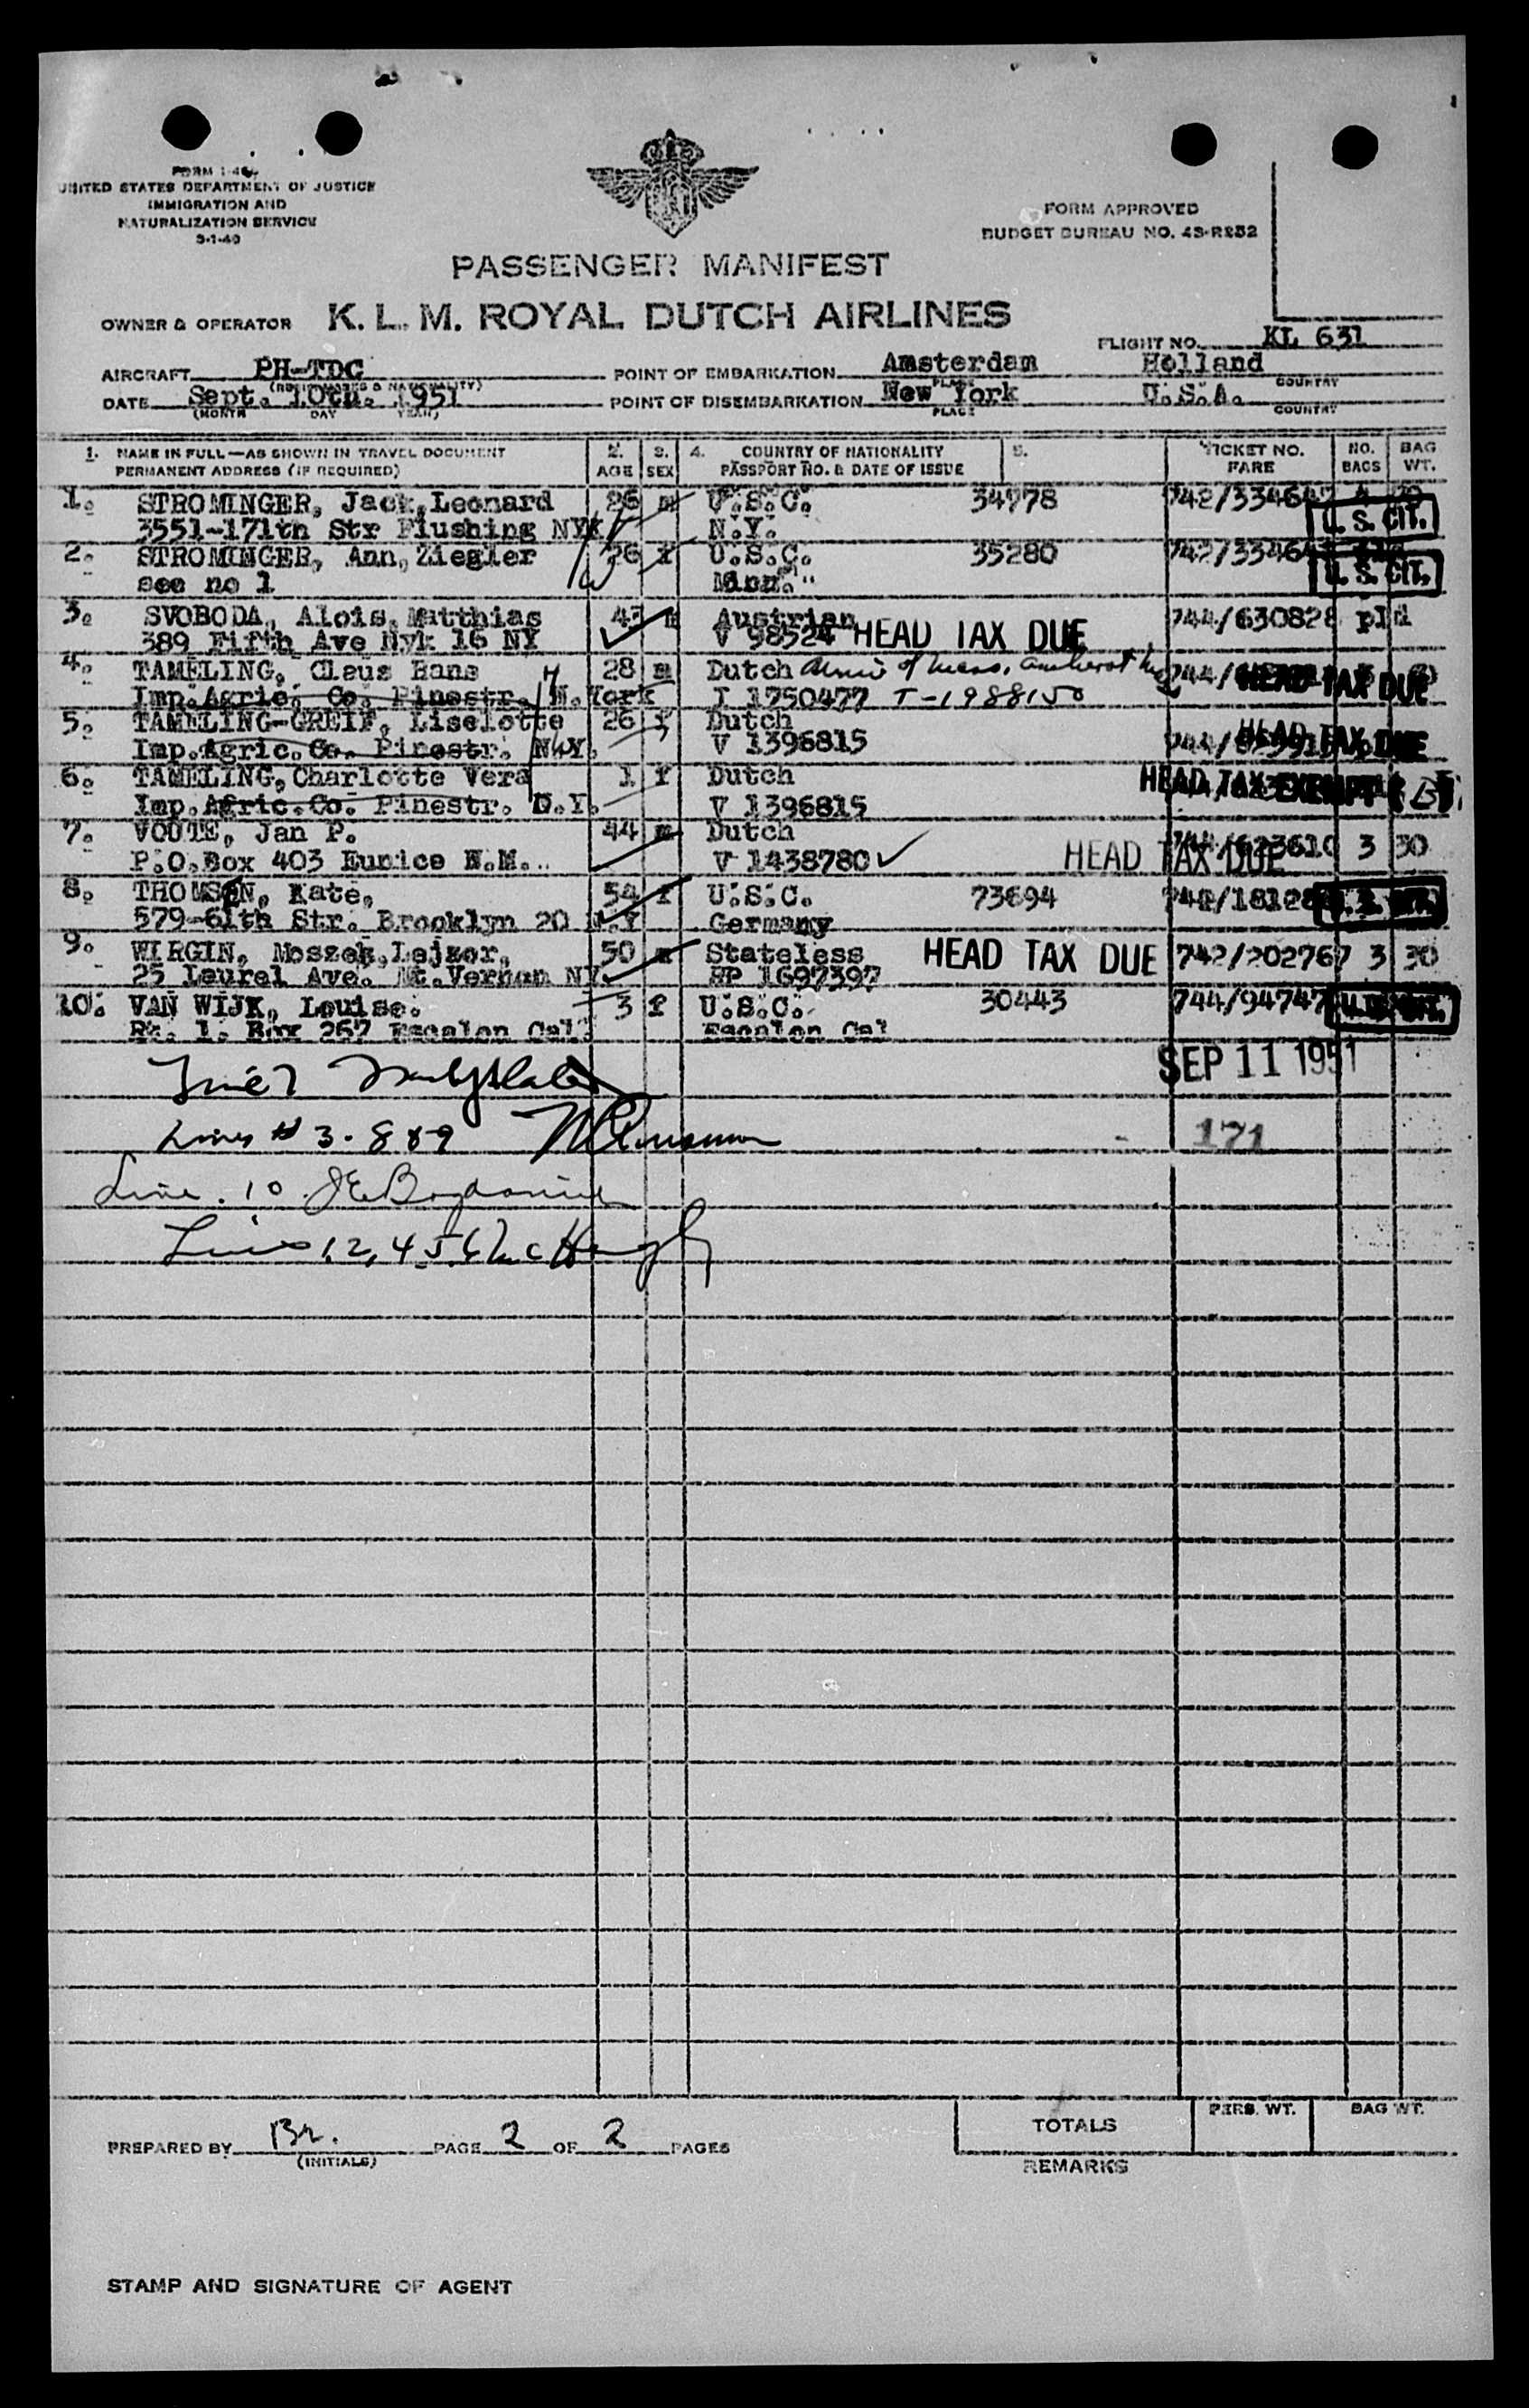 FORM I-466
UNITED STATES DEPARTMENT OF JUSTICE
IMMIGRATION AND
NATURALIZATION SERVICE
FORM APPROVED
BUDGET BUREAU NO. 43-R232
PASSENGER MANIFEST
OWNER & OPERATOR K. L. M. ROYAL DUTCH AIRLINES
FLIGHT NO. KL 631
AIRCRAFT PH-TDC POINT OF EMBARKATION Amsterdam Holland
PLACE COUNTRY
DATE Sept. 10th. 1951 POINT OF DISEMBARKATION New York U.S.A.
(MONTH DAY YEAR) PLACE COUNTRY
1. NAME IN FULL—AS SHOWN IN TRAVEL DOCUMENT 2. 3. 4. COUNTRY OF NATIONALITY 5. TICKET NO. NO. BAG
PERMANENT ADDRESS (IF REQUIRED) AGE SEX PASSPORT NO. & DATE OF ISSUE FARE BAGS WT.
1. STROMINGER, Jack, Leonard 26 m U.S.C. 34778
3551-171th Str Flushing NYK N.Y. U. S. CIT.
2. STROMINGER, Ann, Ziegler 26 f U.S.C. 35280
see no 1 U. S. CIT.
3. SVOBODA, Alois, Matthias m Austrian 744/630828 pld
389 Fifth Ave Nyk 16 NY V 98524 HEAD TAX DUE
4. TAMELING, Claus Hans 28 m Dutch Univ of Mass, Amherst
Imp. Agric. Co. Pinestr. N. York T-1988150 HEAD TAX DUE
5. TAMELING-GREIF, Liselotte 26 f Dutch
Imp. Agric. Co. Pinestr. N.Y. V 1396815 HEAD TAX DUE
6. TAMELING, Charlotte Vera 1 f Dutch HEAD TAX EXEMPT
Imp. Agric. Co. Pinestr. N.Y. V 1396815
7. VOUTE, Jan P. 44 m Dutch 744/623610 3 30
P.O. Box 403 Eunice N.M. V 1438780 HEAD TAX DUE
8. THOMSEN, Kate, 54 f U.S.C. 73694
579-61th Str. Brooklyn 20 N.Y Germany
9. WIRGIN, Moszek, Lejzor, 50 m Stateless HEAD TAX DUE 742/202767 3 30
25 Laurel Ave. Mt. Vernon NY. RP 1697397
10. VAN WIJK, Louise. 3 f U.S.C. 30443
Rt. 1. Box 267 Escalon Cal. Escalon Cal
SEP 11 1951
Line 7
Lines # 3-8&9
171
Line. 10
Lines 1, 2, 4 5 6
PREPARED BY Br. PAGE 2 OF 2 PAGES
(INITIALS)
TOTALS PERS. WT. BAG WT.
REMARKS
STAMP AND SIGNATURE OF AGENT